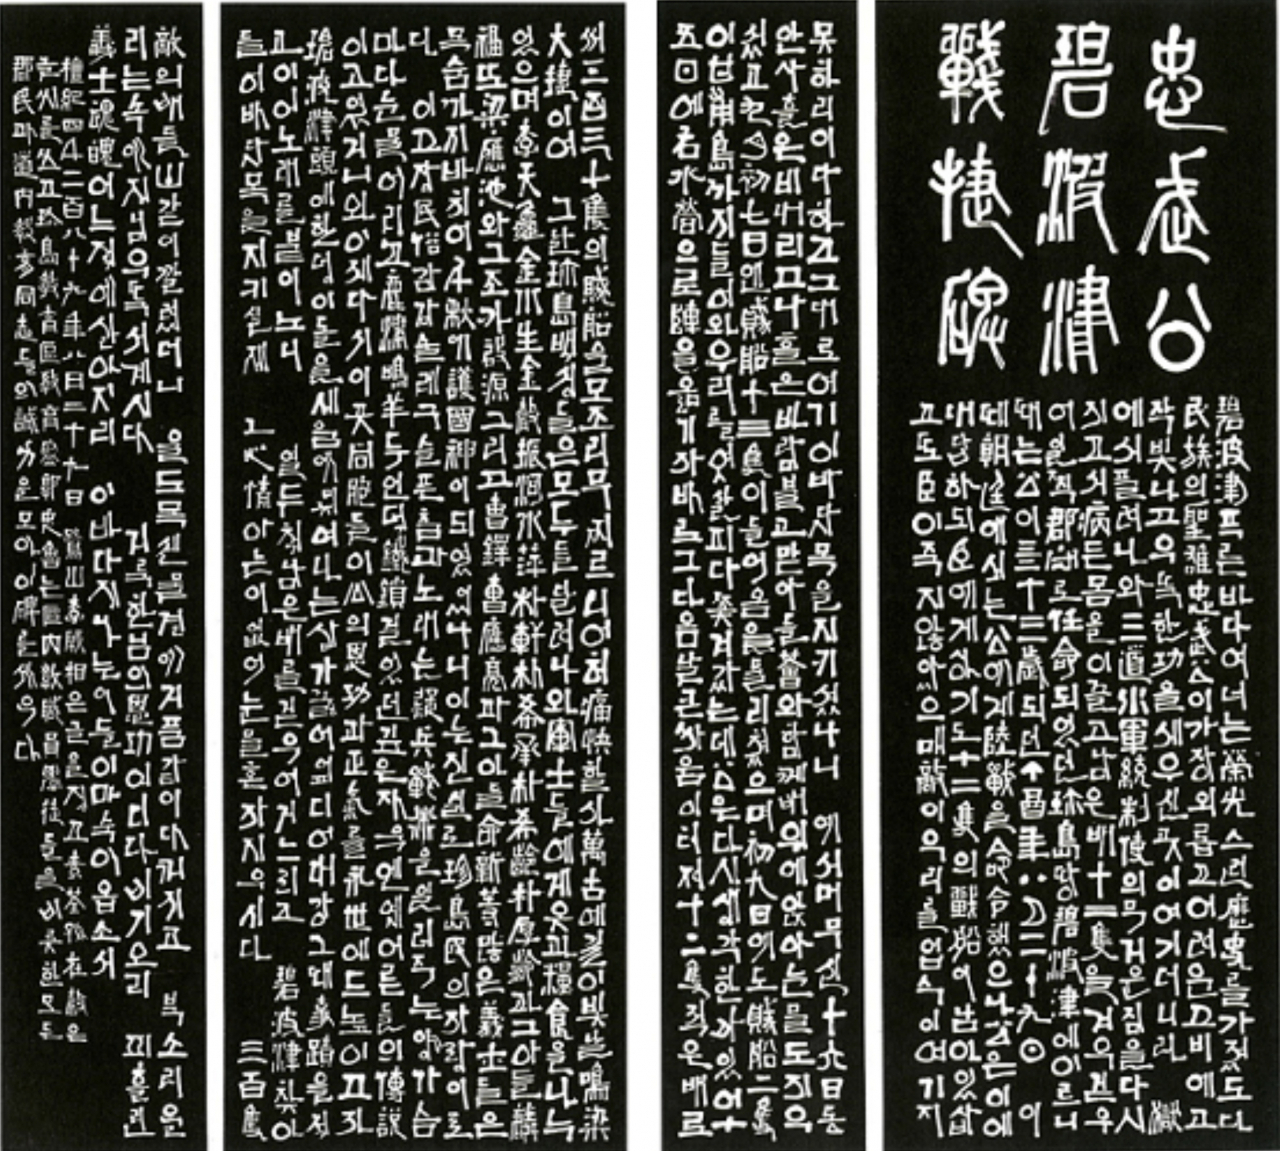 忠武公
碧波津
戰捷碑
碧波津푸른바다여너는榮光스런歷史를가졌도다
民族의聖雄忠武公이가장외롭고어려운고비에고
작빛나고우뚝한功을세우신곳이여기더니라 獄
에서풀려나와三道水軍統制使의무거운짐을다시
지고서病든몸을이끌고남은배十二隻을겨우건우
어일직郡守로任命되었던珍島땅碧波津에이르니
때는公이五十三歲되던丁酉年八月二十九日 이
때朝廷에서는公에게陸戰을命令했으나公은이에
대답하되臣에게상기도十二隻의戰船이남아있삽
고또臣이죽지않았으매敵이우리를업수이여기지
못하리이다하고그대로여기이바다목을지키셨나니 예서머무신十六日동
안사흘은비내리고나흘은바람불고맏아들薈와함께배위에앉아눈물도지우
셨고九月初七日엔賊船十三隻이들어옴을물리쳤으며初九日에도賊船二隻
이甘甫島까지들어와우리를엿살피다쫓겨갔는데公은다시생각한바있어十
五日에右水營으로陣을옮기자바로그다음날큰싸움이터져十二隻적은배로
써三百三十隻의賊船을모조리무찌르니어허痛快할사萬古에길이빛날鳴梁
大捷이여 그날珍島백성들은모두들달려나와軍士들에게옷과糧食을나누
었으며李天龜金水生金 振河水 朴軒朴 朴希齡朴厚齡과그아들麟
福또梁應池와그조카 源그리고曺鐸曺應亮과그아들命新等많은義士들은
목숨까지바치어千秋에護國神이되었나니이는진실로珍島民의자랑이로
다 이고장民俗강강술래구슬픈춤과노래는疑兵戰術을일러주는양가슴
마다눈물어리고 鳴羊두언덕鐵鎖걸었던깊은자욱엔옛어른들의傳說
이고였거니와이제다시이곳同胞들이公의恩功과正氣를永世에드높이고자
碧波津頭에한덩이돌을세움에 나는삼가글 대강그때事蹟을적
고이어노래를붙이노니 열두척남은배를거두어거느리고 碧波津찾아
들어바다목을지키실제 그心情아는이없어눈물혼자지우시다 三百隻
敵의배들山같이깔렸더니 울도목센물결에거품같이다꺼지고 북소리울
리는속에저님우뚝서계시다 거룩한님의恩功어디다비기오리 피흘린
義士魂魄어느적에살아지리 이바다지나는이들이마속이옵소서
檀紀四千二百八十九年八月二十九日 鷺山李殷相은글을짓고素荃孫在馨은
글씨를쓰고珍島敎育區敎育監郭忠魯는區內敎職員學徒들을비롯한모든
郡民과道內敎育同志들의誠力을모아이碑를세우다